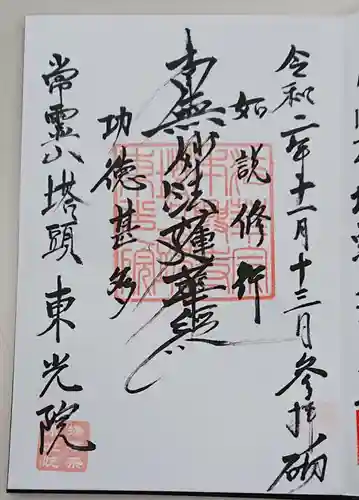 令和二年十一月十三日参拝砌
如説修行
南無妙法蓮華経
功徳甚多
常霊山塔頭東光院